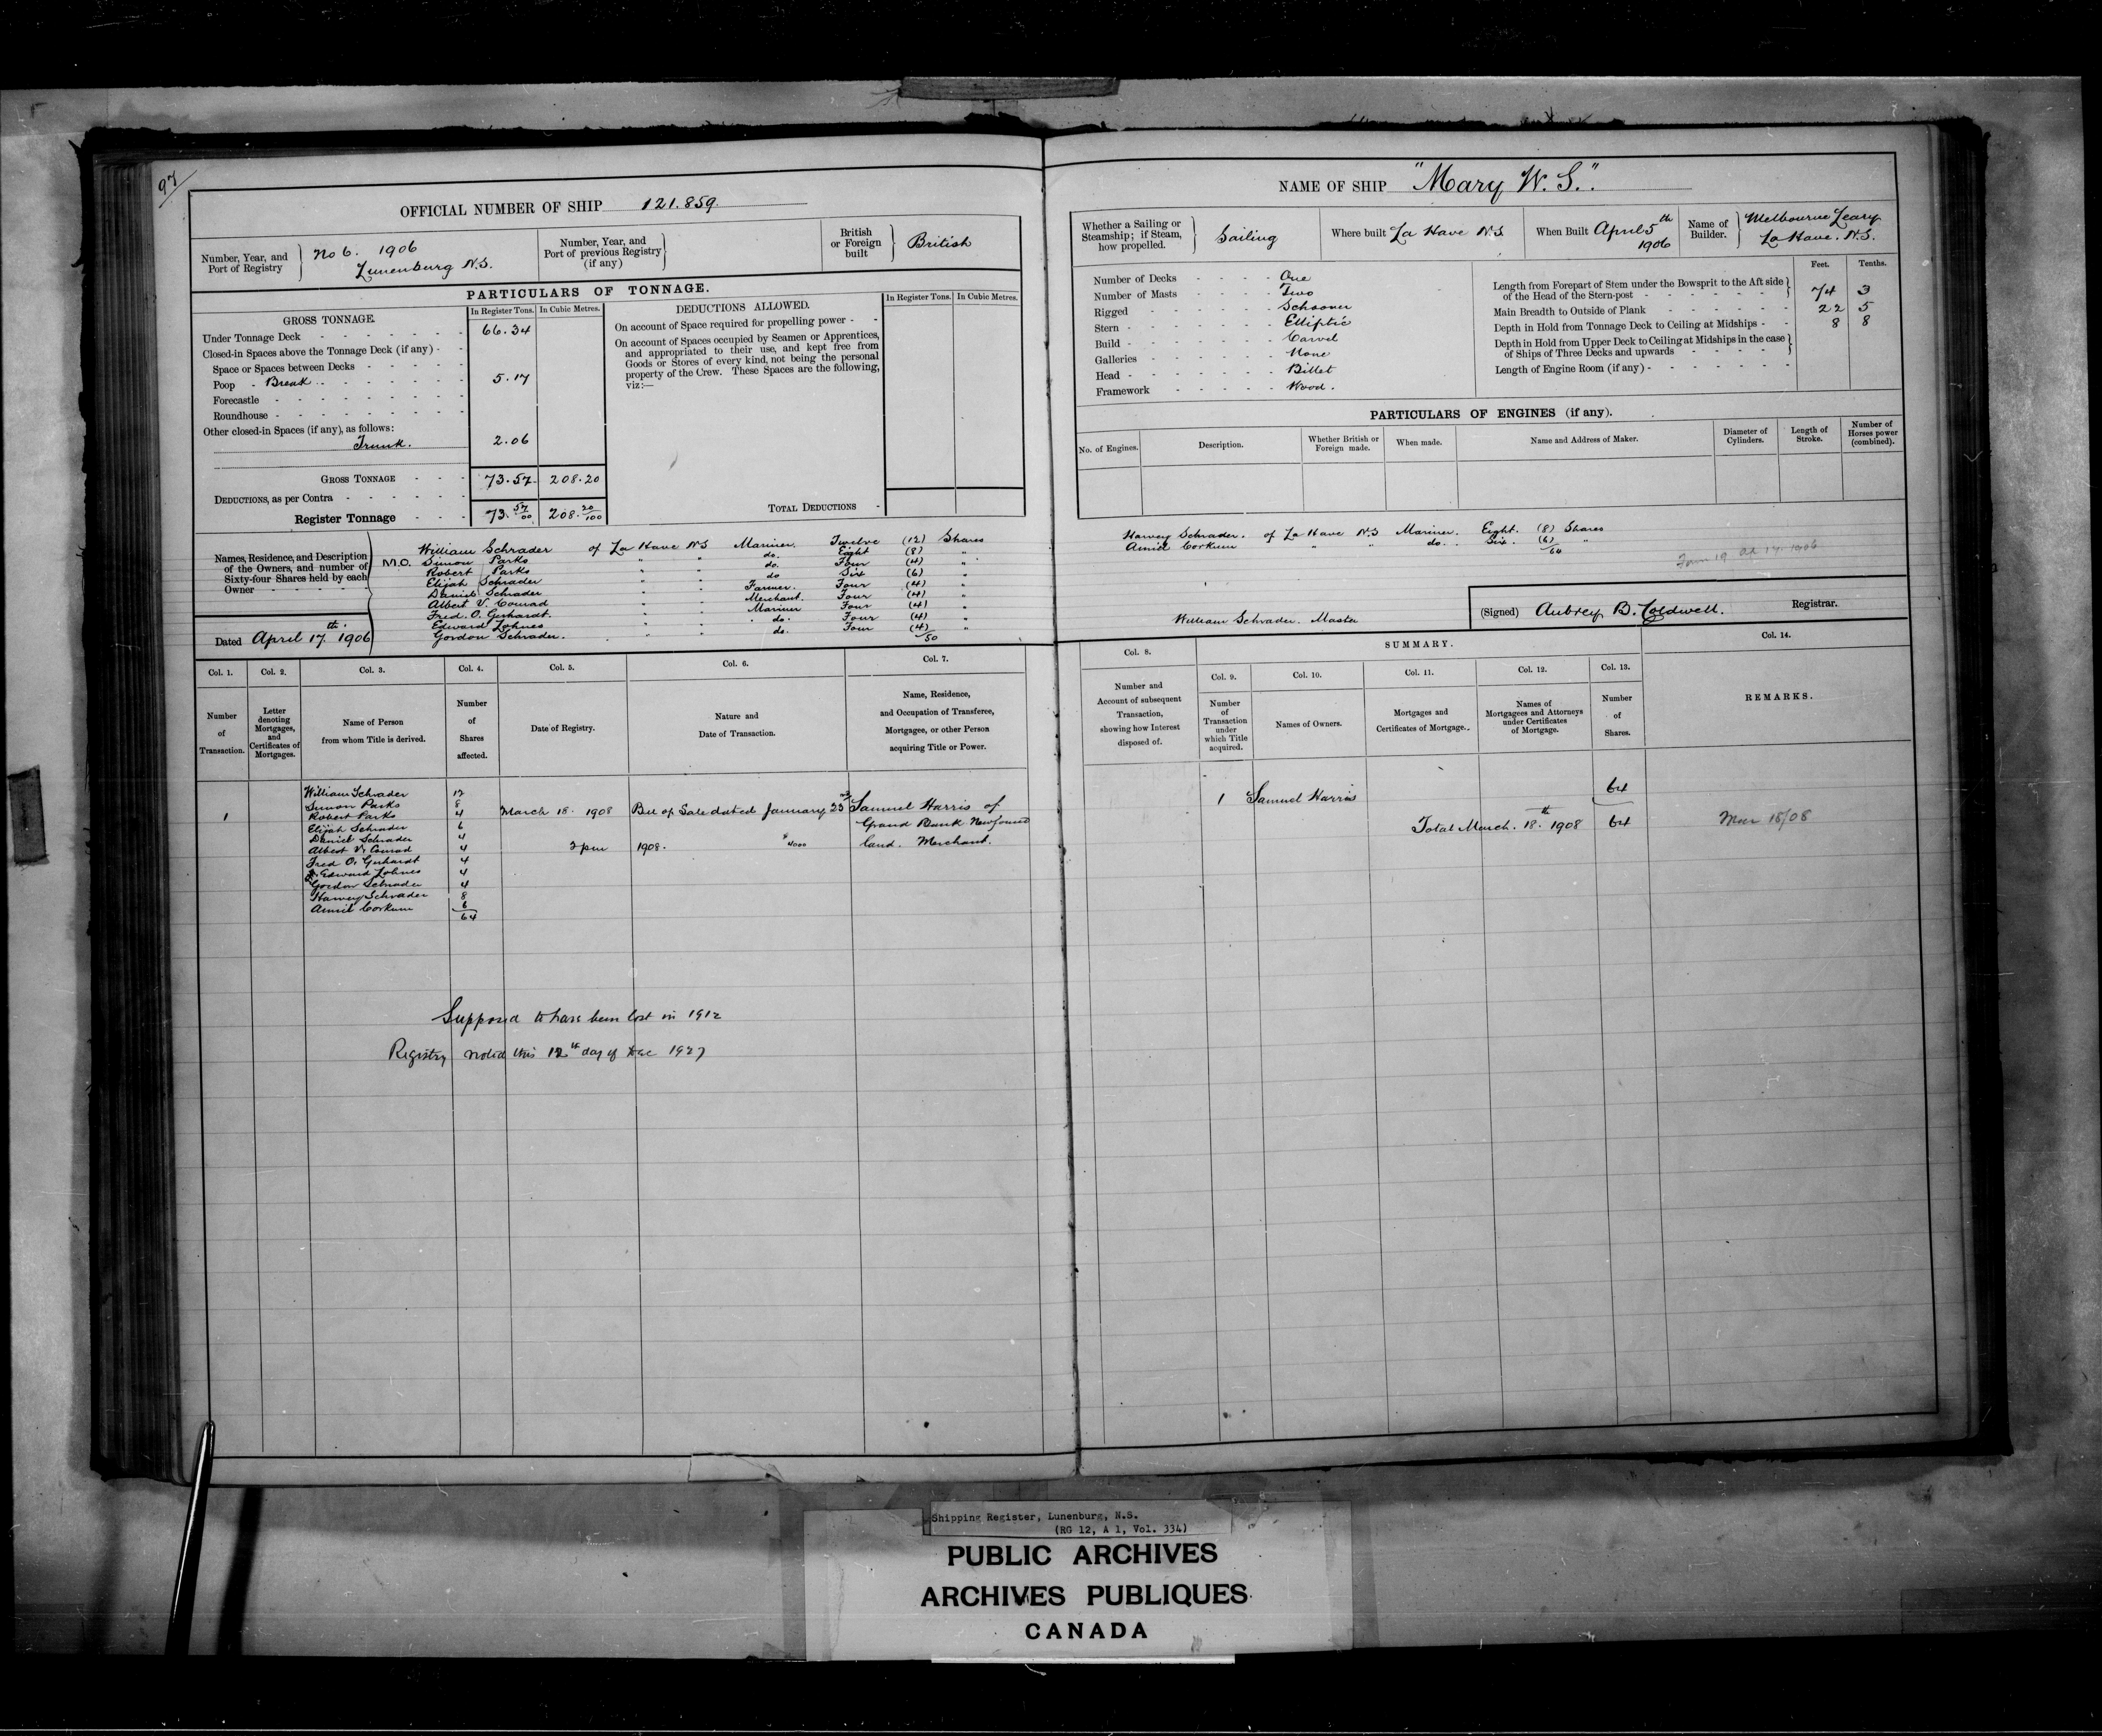 97
OFFICIAL NUMBER OF SHIP 121.859.
Number, Year, and Port of Registry } No 6. 1906 Lunenburg N.S.
Number, Year, and Port of previous Registry (if any) }
British or Foreign built } British
PARTICULARS OF TONNAGE.
GROSS TONNAGE.
In Register Tons. In Cubic Metres.
Under Tonnage Deck - - - - - 66.34
Closed-in Spaces above the Tonnage Deck (if any) - -
Space or Spaces between Decks - - - - -
Poop - Break - - - - - - 5.17
Forecastle - - - - - - - -
Roundhouse - - - - - - - -
Other closed-in Spaces (if any), as follows:
Trunk. 2.06
GROSS TONNAGE - - - 73.57 208.20
DEDUCTIONS, as per Contra - - - - - -
Register Tonnage - - - 73.57/00 208.20/100
DEDUCTIONS ALLOWED.
In Register Tons. In Cubic Metres.
On account of Space required for propelling power - -
On account of Spaces occupied by Seamen or Apprentices,
and appropriated to their use, and kept free from
Goods or Stores of every kind, not being the personal
property of the Crew. These Spaces are the following,
viz:—
TOTAL DEDUCTIONS -
Names, Residence, and Description of the Owners, and number of Sixty-four Shares held by each Owner - - - - -
M.O. William Schrader of La Have NS Mariner. Twelve (12) Shares
Simon Parks " " do. Eight (8) "
Robert Parks " " do. Four (4) "
Elijah Schrader " " do Six (6) "
Daniel Schrader " " Farmer. Four (4) "
Albert V. Conrad " " Merchant. Four (4) "
Fred. O. Gerhardt. " " Mariner Four (4) "
Edward Lohnes " " do. Four (4) "
Gordon Schrader. " " do. Four (4) "
50
Dated April 17th. 1906
NAME OF SHIP "Mary W. S."
Whether a Sailing or Steamship; if Steam, how propelled. } Sailing
Where built La Have N.S
When Built April 5th 1906
Name of Builder. } Melbourne Leary La Have. N.S.
Number of Decks - - - - One
Number of Masts - - - - Two
Rigged - - - - - Schooner
Stern - - - - - - Elliptic
Build - - - - - - Carvel
Galleries - - - - - None
Head - - - - - - Billet
Framework - - - - Wood.
Feet. Tenths.
Length from Forepart of Stem under the Bowsprit to the Aft side
of the Head of the Stern-post - - - - - - - } 74 3
Main Breadth to Outside of Plank - - - - - - 22 5
Depth in Hold from Tonnage Deck to Ceiling at Midships - - 8 8
Depth in Hold from Upper Deck to Ceiling at Midships in the case
of Ships of Three Decks and upwards - - - - - }
Length of Engine Room (if any) - - - - - - -
PARTICULARS OF ENGINES (if any).
No. of Engines. Description. Whether British or Foreign made. When made. Name and Address of Maker. Diameter of Cylinders. Length of Stroke. Number of Horses power (combined).
Harvey Schrader. of La Have N.S Mariner. Eight. (8) Shares
Amiel Corkum " " do. Six. (6) "
64
Form 19 Ap 17. 1906
William Schrader. Master
(Signed) Aubrey B. Coldwell. Registrar.
Col. 1. Col. 2. Col. 3. Col. 4. Col. 5. Col. 6. Col. 7.
Number of Transaction.
Letter denoting Mortgages, and Certificates of Mortgages.
Name of Person from whom Title is derived.
Number of Shares affected.
Date of Registry.
Nature and Date of Transaction.
Name, Residence, and Occupation of Transferee, Mortgagee, or other Person acquiring Title or Power.
Col. 8. SUMMARY. Col. 14.
Col. 9. Col. 10. Col. 11. Col. 12. Col. 13.
Number and Account of subsequent Transaction, showing how Interest disposed of.
Number of Transaction under which Title acquired.
Names of Owners.
Mortgages and Certificates of Mortgage.
Names of Mortgagees and Attorneys under Certificates of Mortgage.
Number of Shares.
REMARKS.
William Schrader 12
Simon Parks 8
1 Robert Parks 4 March 18. 1908 Bill of Sale dated January 23rd Samuel Harris of
Elijah Schrader 6 Grand Bank Newfound
Daniel Schrader 4
Albert V. Conrad 4 2 pm 1908. $4000 land. Merchant.
Fred O. Gerhardt 4
Edward Lohnes 4
Gordon Schrader 4
Harvey Schrader 8
Amiel Corkum 6
64
1 Samuel Harris 64
Total March. 18th. 1908 64 Mar 18/08
Supposed to have been lost in 1912
Registry noted this 12th day of Dec 1927
Shipping Register, Lunenburg, N.S.
(RG 12, A 1, Vol. 334)
PUBLIC ARCHIVES
ARCHIVES PUBLIQUES
CANADA